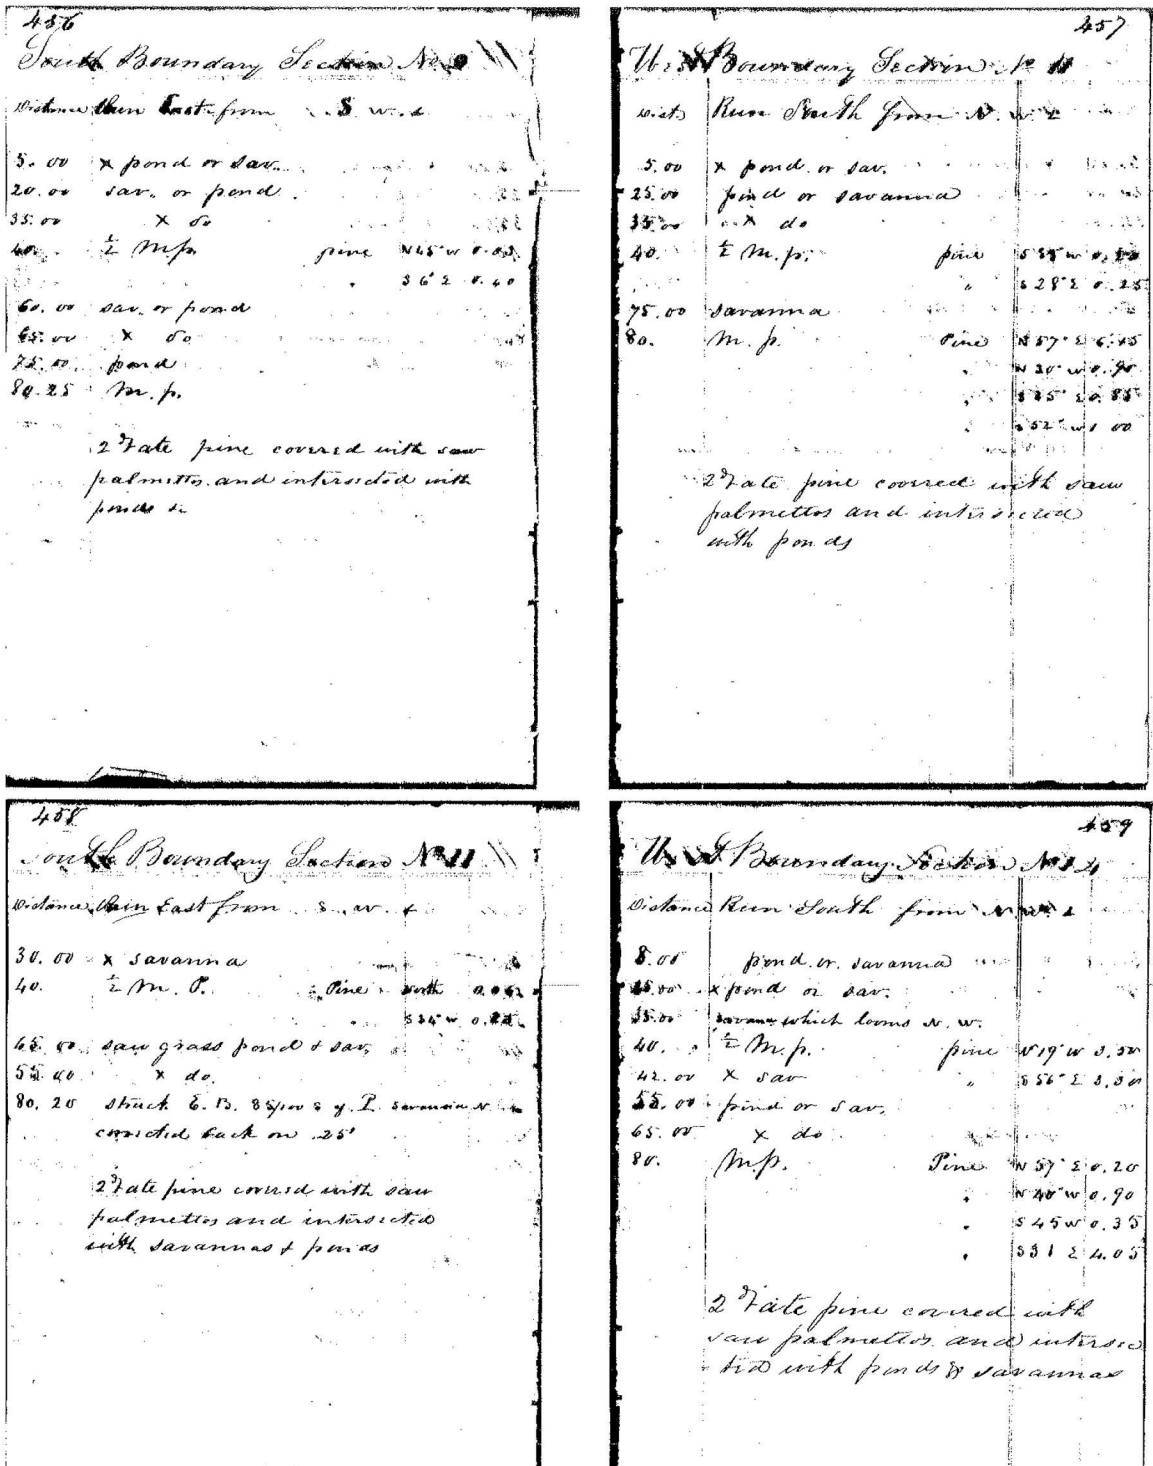 456
South Boundary Section No.
Distance Run East from S. W. 
5.00 x pond or sav.
20.00 sav. or pond
35.00 x do
40. ½ M. p. pine N45 W
" S 6° E 0.40
60.00 sav. or pond
65.00 x do
75.00 pond
80.25 M. p.
2d rate pine covered with saw
palmettos and intersected with
ponds &c
457
West Boundary Section No 11
Dist. Run South from N. W.
5.00 x pond or sav.
25.00 pond or savanna
35.00 x do
40. ½ M. p. pine
" S 28° E 0.25
75.00 savanna
80. M. p. Pine N 57° E
" N 30° W 0.90
"
" S 52° W 1 00
2d rate pine covered with saw
palmettos and intersected
with ponds
458
South Boundary Section No 11
Distance Run East from S. W.
30.00 x savanna
40. ½ M. P. Pine North
"
saw grass pond & sav.
x do.
80.20 struck E. B. savanna
corrected back on .25'
2d rate pine covered with saw
palmettos and intersected
with savannas & ponds
459
West Boundary Section No 14
Distance Run South from N. W.
8.00 pond or savanna
x pond or sav.
35.00 which looms N. W.
40. ½ M. p. pine N 19° W 3.50
42.00 x sav " S 56° E 3.30
55.00 pond or sav.
65.00 x do
80. M. p. Pine N 57° E 0.20
" N 40° W 0.90
" S 45 W 0.35
" S 31 E 4.05
2d rate pine covered with
saw palmettos and intersec
ted with ponds & savannas